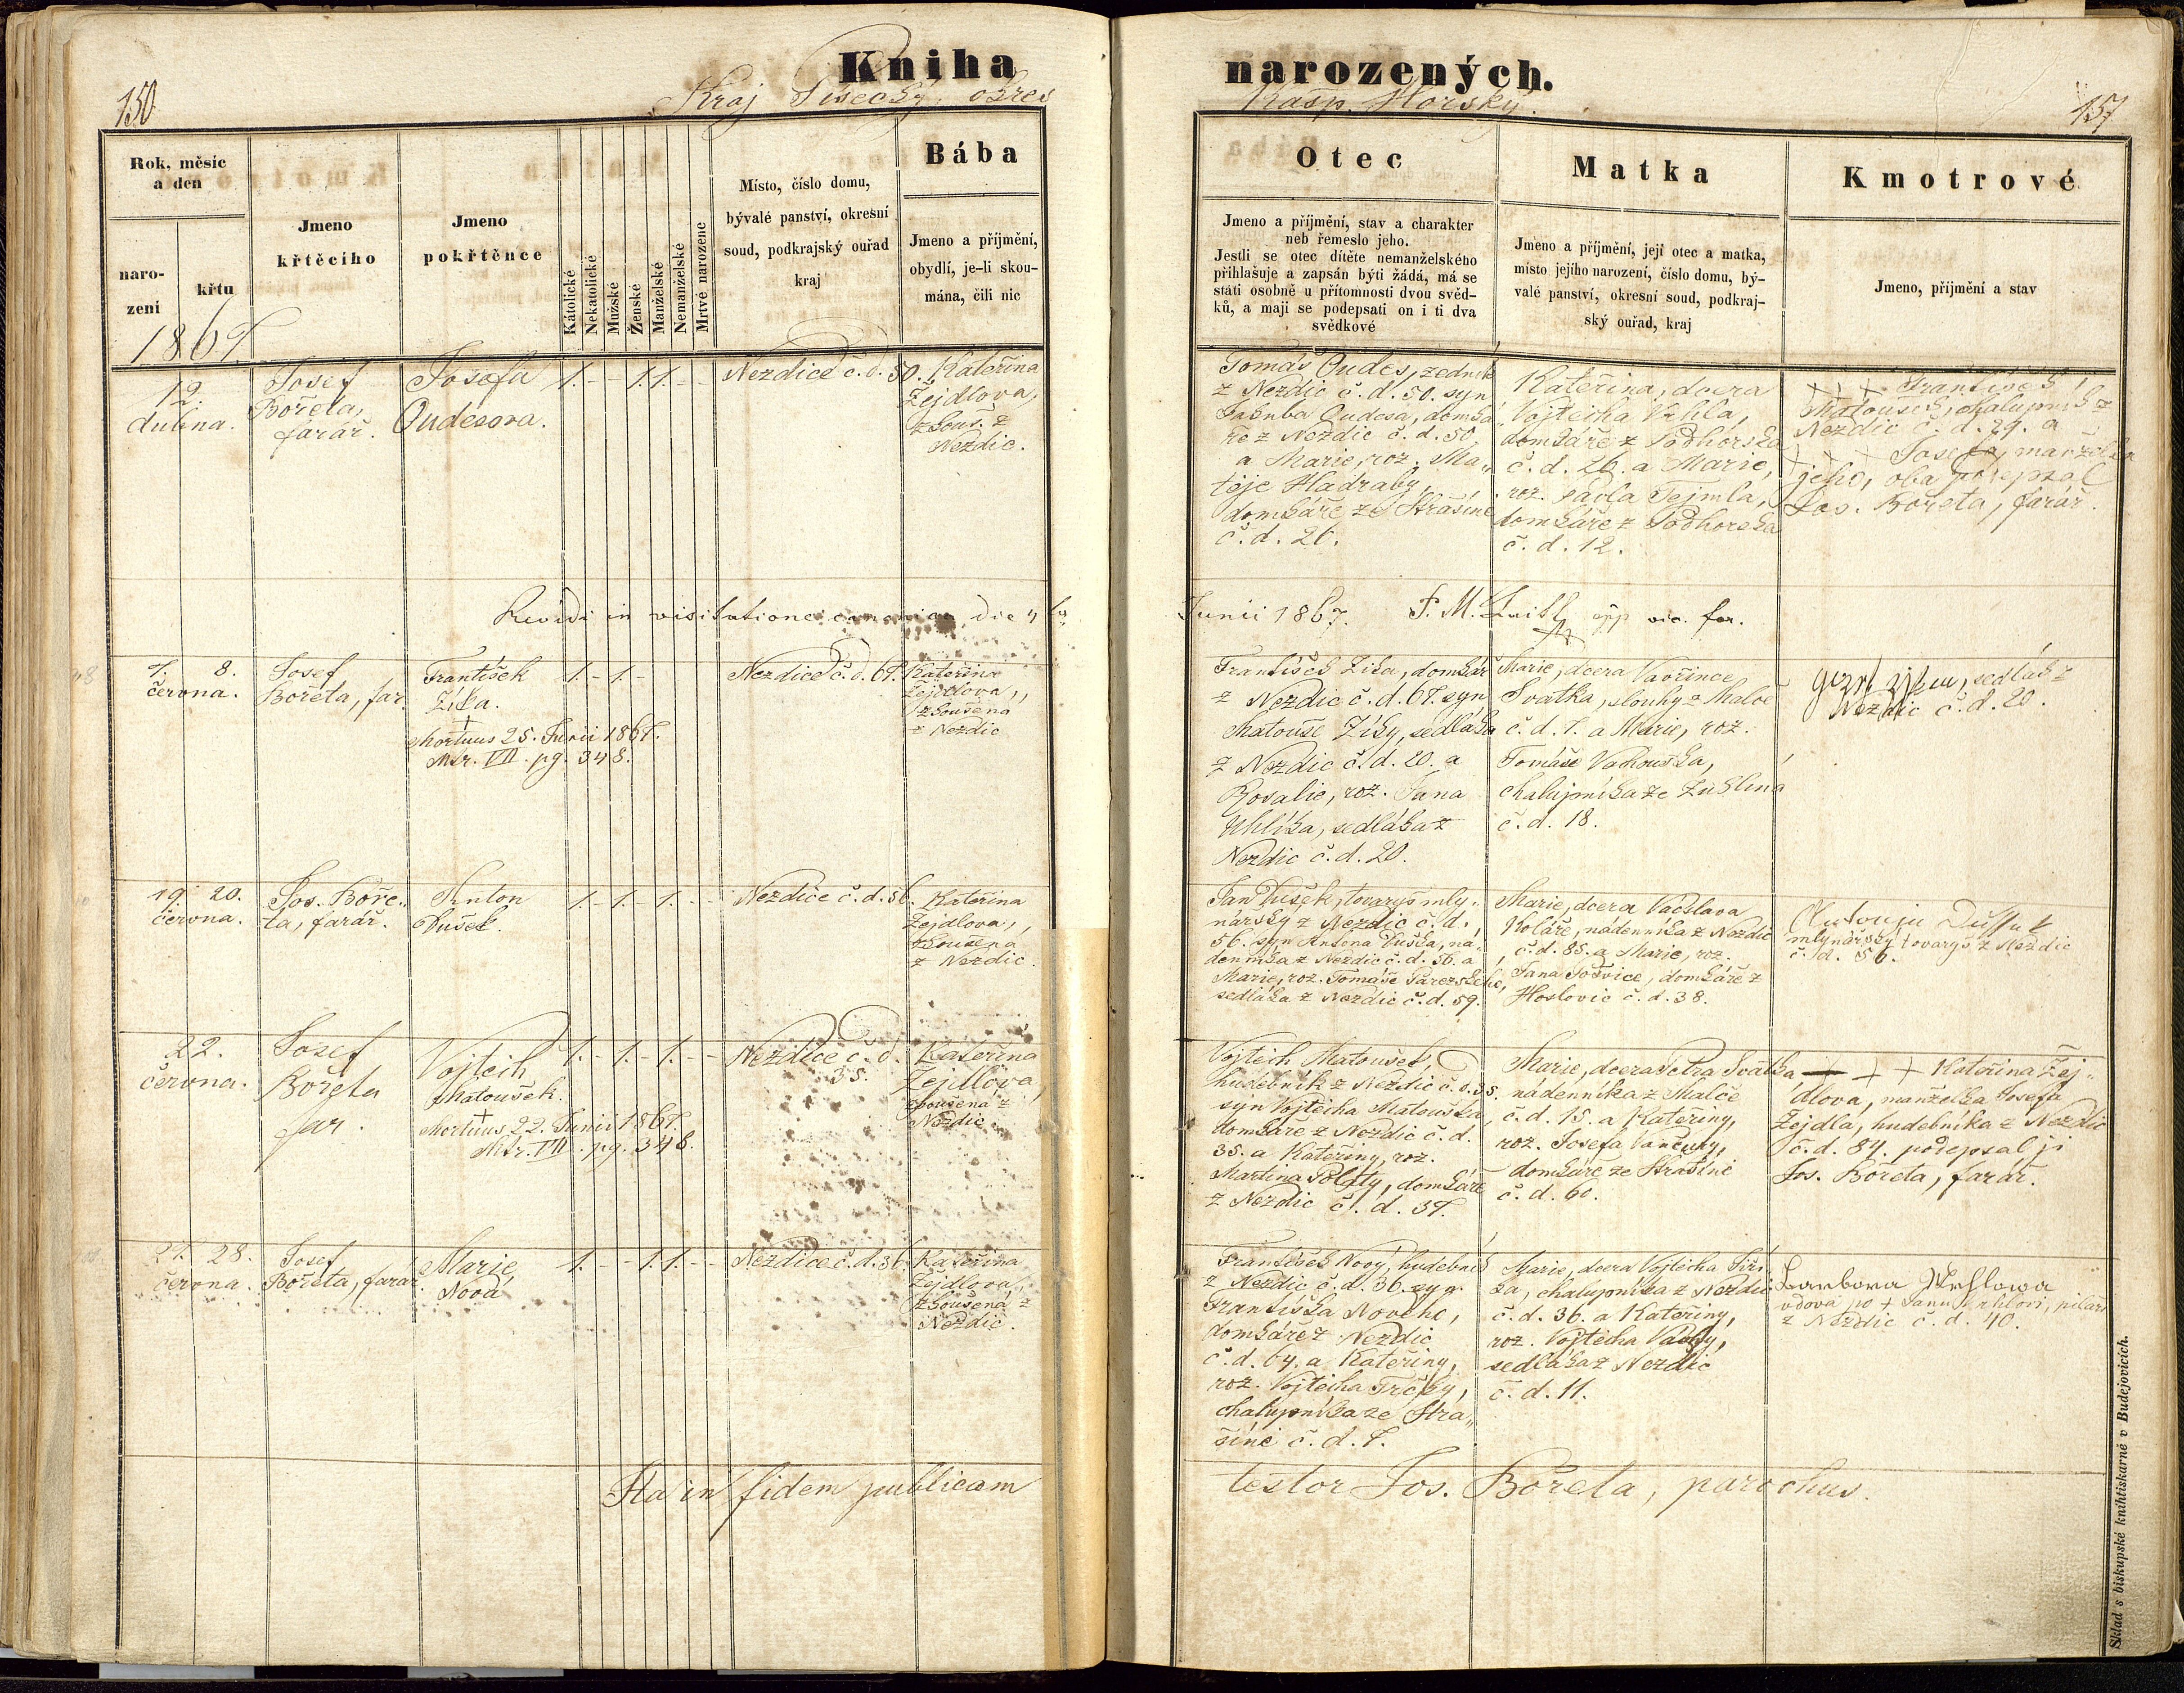 Kniha narozených.
150
Kraj Písecký, okres Kašp. Horský.
151
Rok, měsíc
a den
naro-
zení
křtu
Jmeno
křtěcího
Jmeno
pokřtěnce
Kátolické
Nekatolické
Mužské
Ženské
Manželské
Nemanželské
Mrtvé narozené
Místo, číslo domu,
bývalé panství, okresní
soud, podkrajský ouřad
kraj
Bába
Jmeno a příjmění,
obydlí, je-li skou-
mána, čili nic
Otec
Jmeno a příjmění, stav a charakter
neb řemeslo jeho.
Jestli se otec dítěte nemanželského
přihlašuje a zapsán býti žádá, má se
státi osobně u přítomnosti dvou svěd-
ků, a mají se podepsati on i ti dva
svědkové
Matka
Jmeno a příjmění, její otec a matka,
místo jejího narození, číslo domu, bý-
valé panství, okresní soud, podkraj-
ský ouřad, kraj
Kmotrové
Jmeno, příjmění a stav
1867
12.
dubna.
Josef
Bořeta,
farář.
Josefa
Oudesova.
1. - - 1. 1. - -
Nezdice č. d. 50.
Kateřina
Žejdlova,
zkouš. z
Nezdic.
Tomáš Oudes, zedník
z Nezdic č. d. 50. syn
Jakuba Oudesa, domká„
ře z Nezdic č. d. 50,
a Marie, roz. Ma„
těje Hadraby,
domkáře ze Strašíně
č. d. 26.
Kateřina, dcera
Vojtěcha Vrhla,
domkáře z Podhorska
č. d. 26. a Marie,
roz. Pavla Tejmla,
domkáře z Podhorska
č. d. 12.
+ + + František
Matoušek, chalupník z
Nezdic č. d. 29. a
+ + + Josefa, manželka
jeho, oba podepsal
Jos. Bořeta, farář.
Revidi in visitatione canonica die 4ta
Junii 1867. F. M. vic. for.
7. 8.
června.
Josef
Bořeta, far.
František
Zíka.
+
Mortuus 25. Junii 1867.
Mtr. VII. pg. 348.
1. - 1. -
Nezdice č. d. 67.
Kateřina
Žejdlova,
zkoušená
z Nezdic
František Zíka, domkář
z Nezdic č. d. 67. syn
Matouše Zíky, sedláka
z Nezdic č. d. 20. a
Rosalie, roz. Jana
Uhlíka, sedláka z
Nezdic č. d. 20.
Marie, dcera Vavřince
Svatka, slouhy z Malče
č. d. 1. a Marie, roz.
Tomáše Vachouška,
chalupníka ze Zuklína
č. d. 18.
sedlák z
Nezdic č. d. 20.
19. 20.
června.
Jos. Boře„
ta, farář.
Anton
Dušek.
1. - 1. - 1. - -
Nezdice č. d. 56.
Kateřina
Žejdlova,
zkoušena
z Nezdic.
Jan Dušek, tovaryš mly„
nářský z Nezdic č. d.
56. syn Antona Duška, ná„
denníka z Nezdic č. d. 56. a
Marie, roz. Tomáše Pařezského,
sedláka z Nezdic č. d. 59.
Marie, dcera Václava
Koláře, nádenníka z Nezdic
č. d. 85. a Marie, roz.
Jana Tošvice, domkáře z
Hoslovic č. d. 38.
mlynářský tovaryš z Nezdic
č. d. 56.
22.
června.
Josef
Bořeta
far.
Vojtěch
Matoušek.
+
Mortuus 22. Junii 1867.
Mtr. VII. pg. 348.
1. - 1. - 1. - -
Nezdice č. d.
35.
Kateřina
Žejdlova,
zkoušená z
Nezdic.
Vojtěch Matoušek,
hudebník z Nezdic č. d. 35.
syn Vojtěcha Matouška,
domkáře z Nezdic č. d.
35. a Kateřiny, roz.
Martina Polaty, domkáře
z Nezdic č. d. 37.
Marie, dcera Petra Svatka
nádenníka z Malče
č. d. 15. a Kateřiny,
roz. Josefa Vančury,
domkáře ze Strašíně
č. d. 60.
+ + + Kateřina Žej„
dlova, manželka Josefa
Žejdla, hudebníka z Nezdic
č. d. 84. podepsal ji
Jos. Bořeta, farář.
27. 28.
června.
Josef
Bořeta, farář
Marie
Nová
1. - - 1. 1. - -
Nezdice č. d. 36.
Kateřina
Žejdlova,
zkoušená z
Nezdic.
František Nový, hudebník
z Nezdic č. d. 36. syn
Františka Nového,
domkáře z Nezdic
č. d. 64. a Kateřiny,
roz. Vojtěcha Trčky,
chalupníka ze Stra„
šíně č. d. 7.
Marie, dcera Vojtěcha Jiří„
ka, chalupníka z Nezdic
č. d. 36. a Kateřiny,
roz. Vojtěcha Vacky,
sedláka z Nezdic
č. d. 11.
Barbora Wrhlowa
vdova po + Janu Vrhlovi, pilaři
z Nezdic č. d. 40.
Ita in fidem publicam testor Jos. Bořeta, parochus.
Sklad s biskupské knihtiskárně v Budějovicích.